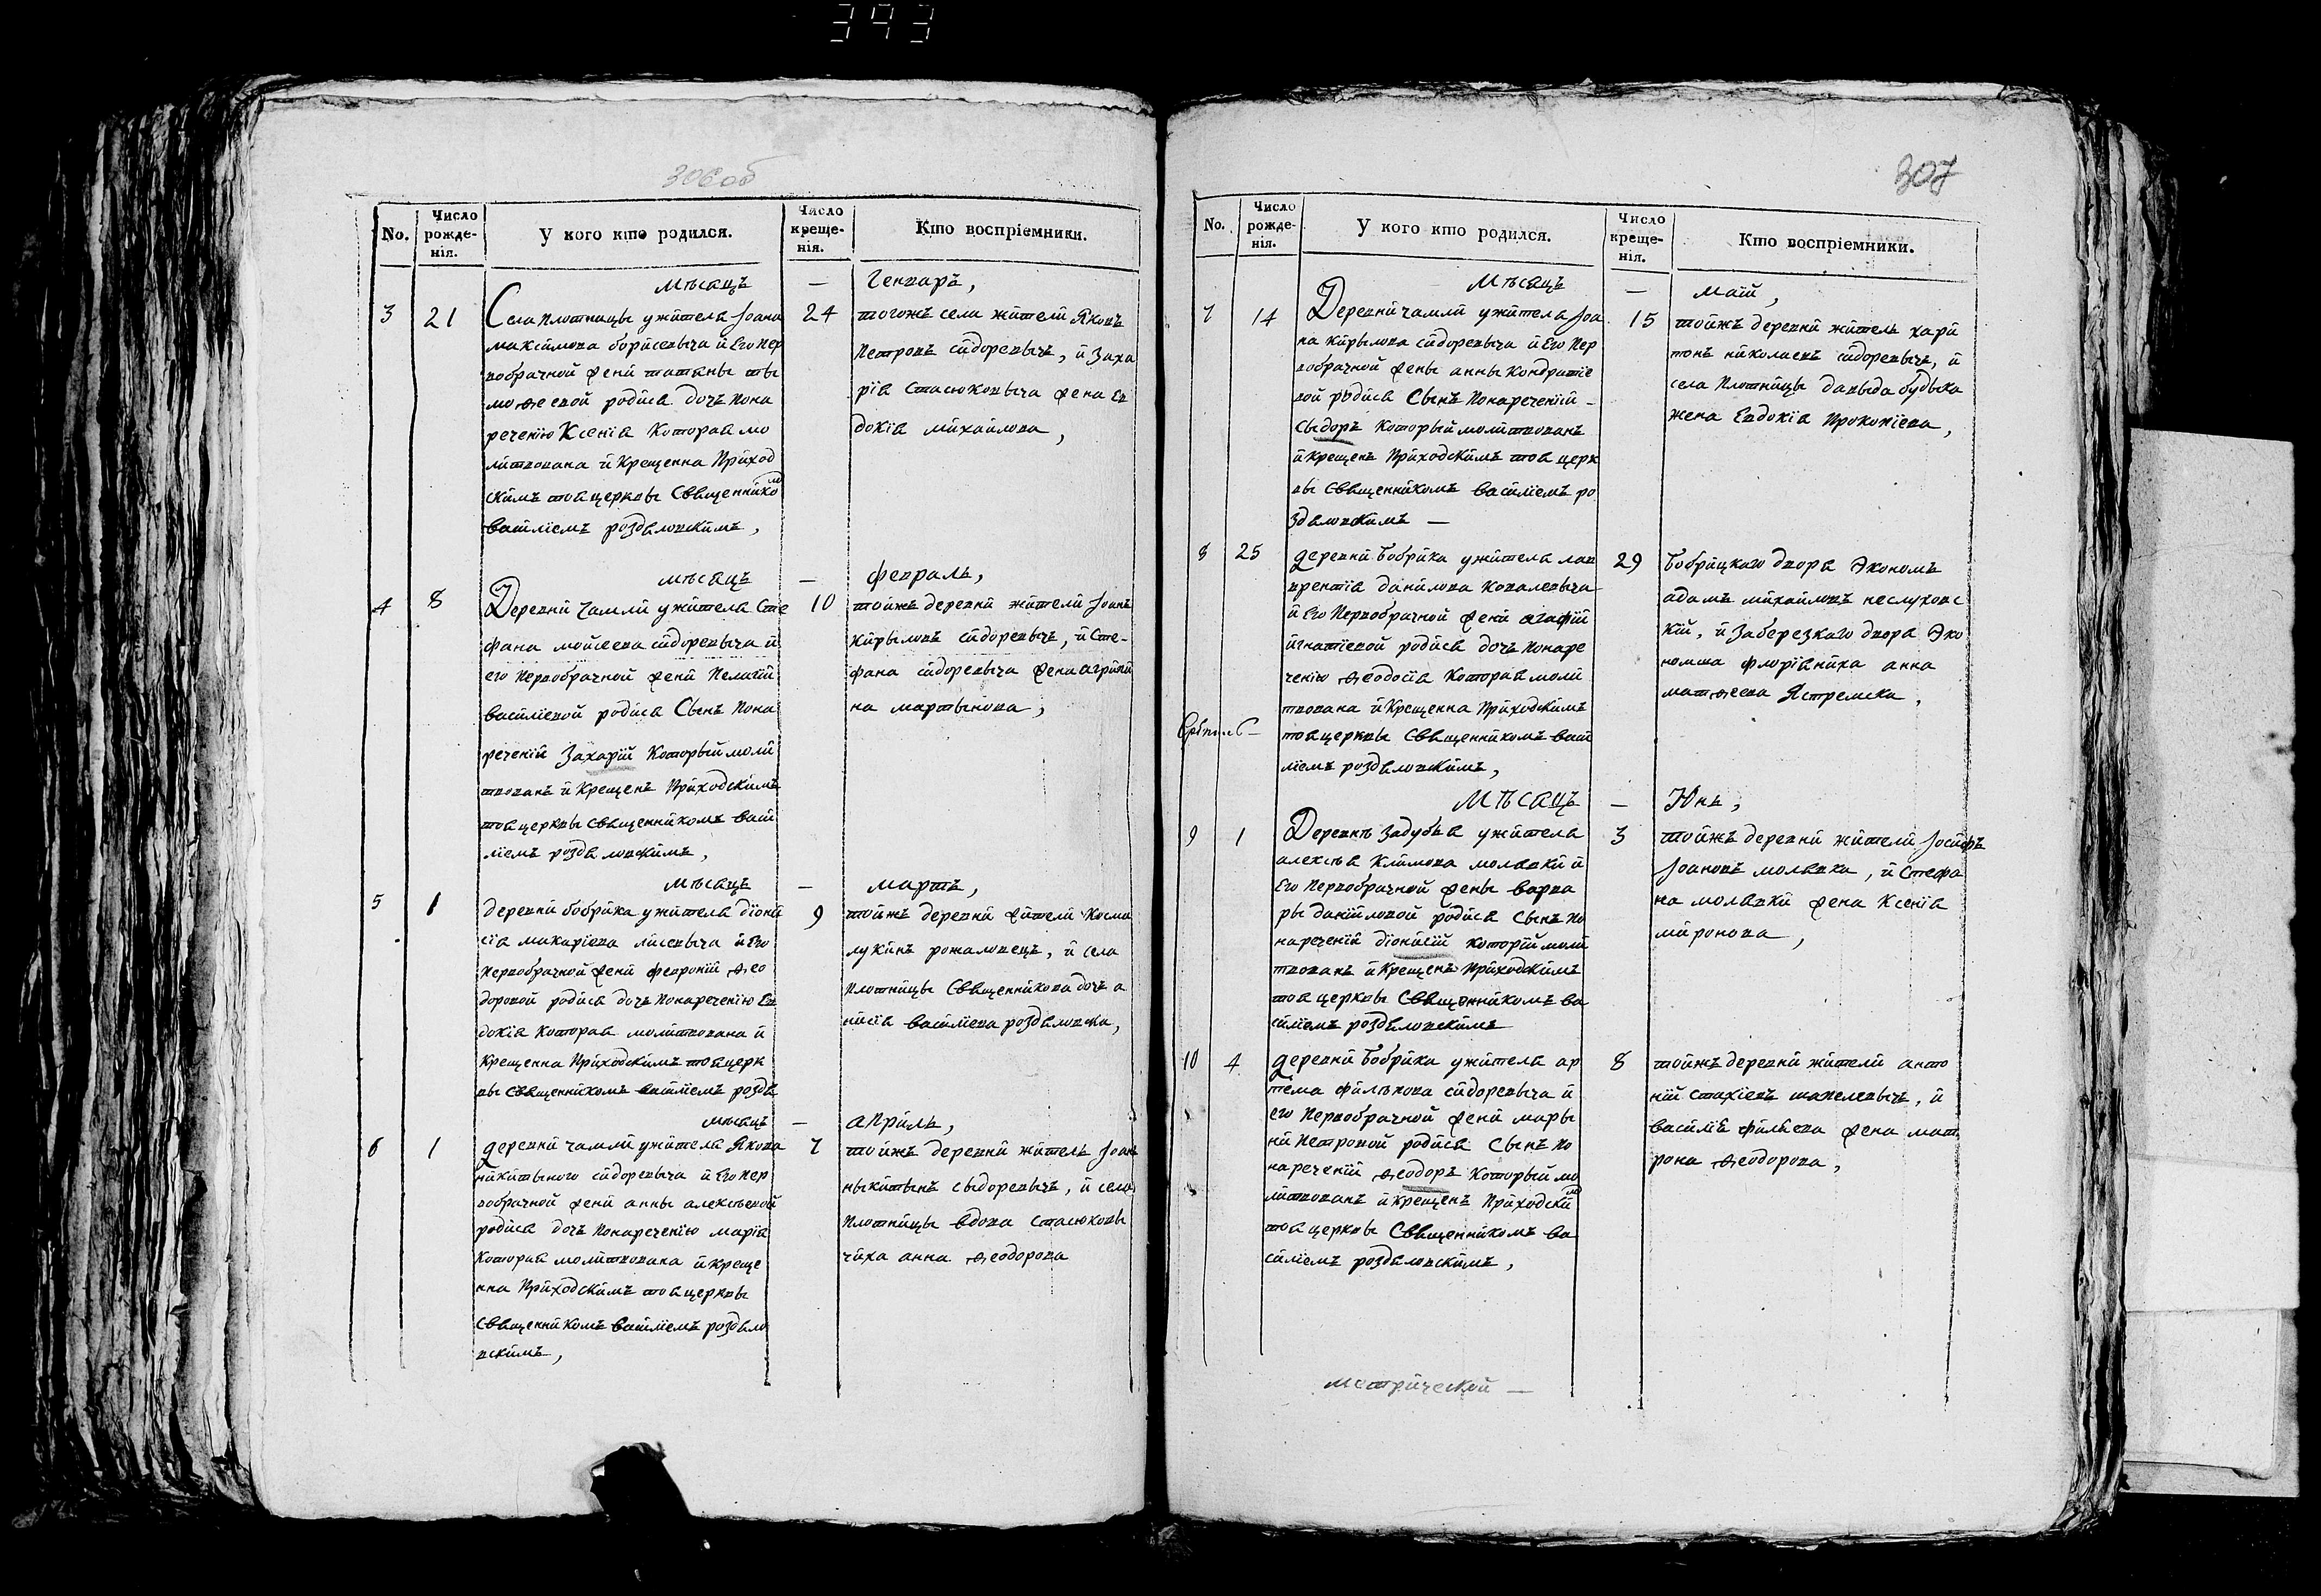 393
306об
No.
Число рожде- нія.
У кого кто родился.
Число креще- нія.
Кто воспріемники.
мѣсяцъ — Генваръ,
3 21
Села плотницы ужителя Іоана
максимова борисевыча и Его пер
вобрачной жени татяны ты
моѳеевой родися дочъ пона
реченію Ксенія Которая мо
литвована и Крещенна Приход
скимъ тоя церквы Священнико
м
василіемъ роздяловскимъ,
24
тогожъ села жители Яковъ
Петровъ сидоревычъ, и Заха
рія Стасюковыча жена Ев
докія михайлова,
мѣсяцъ — февраль,
4 8
Деревни Чамли ужителя Сте
фана мойсеева сидоревыча и
его первобрачной жени Пелагіи
василіевой родися Сынъ Пона
реченіи Захарій Который моли
твованъ и Крещенъ Приходскимъ
тоя церквы священникомъ васи
ліемъ роздяловскимъ,
10
тойжъ деревни жители Іоанъ
Кирыловъ сидоревычъ, и Сте-
фана сидоревыча жена агрипи
на мартынова,
мѣсяцъ — мартъ,
5 1
деревни бобрика ужителя діони
сія макаріева лисевыча и Его
первобрачной жени февроніи ѳео
доровой родися дочъ Понареченію Ев
докія Которая молитвована и
Крещенна Приходскимъ тоя церк
вы священникомъ василіемъ роздя
9
тойжъ деревни жители Косма
лукинъ рожаловецъ, и села
Плотницы Священникова дочъ а
нисія василіева роздяловска,
мѣсяцъ — априль,
6 1
деревни чамли ужителя Якова
никитыного сидоревыча и Его пер
вобрачной жени анны алексѣевой
родися дочъ Понареченію марія
Которая молитвована и Креще
нна Приходскимъ тоя церквы
Священникомъ василіемъ роздяло
вскимъ,
7
тойжъ деревни житель Іоанъ
ныкитынъ сыдоревычъ, и села
Плотницы вдова стасюковы
чиха анна ѳеодорова
307
No.
Число рожде- нія.
У кого кто родился.
Число креще- нія.
Кто воспріемники.
Мѣсяцъ — май,
7 14
Деревни чамли ужителя Іоа
на Кирылова сидоревыча и Его Пер
вобрачной жены анны Кондратіе
вой родися Сынъ Понареченіи —
Сыдоръ Который молитвованъ
и Крещенъ Приходскимъ тоя церк
вы Священникомъ василіемъ ро
здяловскимъ —
15
тойжъ деревни житель хари
тонъ николаевъ сидоревычъ, и
села Плотницы давыда будыка
жена Евдокія Прокопіева,
8 25
деревни бобрика ужителя лав
врентія данилова Ковалевыча
и Его Первобрачной жени агафіи
игнатіевой родися дочъ Понаре
ченію ѳеодосія Которая моли
твована и Крещенна Приходскимъ
тоя церквы Священникомъ васи
ліемъ роздяловскимъ,
29
бобрицкаго двора Экономъ
адамъ михайловъ неслуховс
кій, и Заберезкаго двора Эко
номша флоріяниха анна
матѳеева Ястремска,
мѣсяцъ — Юнь,
9 1
Деревнѣ Задубья ужителя
алексѣя Климова молявки и
Его Первобрачной жены варва
ры даниловой родися Сынъ По
нареченіи діонисій которій моли
твованъ и Крещенъ Приходскимъ
тоя церквы Священникомъ ва
силіемъ роздяловскимъ
3
тойжъ деревни жители Іосифъ
Іоановъ молявка, и Стефа
на молявки жена Ксенія
миронова,
10 4
деревни бобрика ужителя ар
тема филъпова сидоревыча и
его Первобрачной жени мары
ни Петровой родися Сынъ По
нареченіи ѳеодоръ Который мо
литвованъ и Крещенъ Приходски
м
тоя церквы Священникомъ ва
силіемъ роздяловскимъ,
8
тойжъ деревни жители анто
ній стахіевъ шапелевычъ, и
василія филіева жена мат
рона ѳеодорова,
метрической —